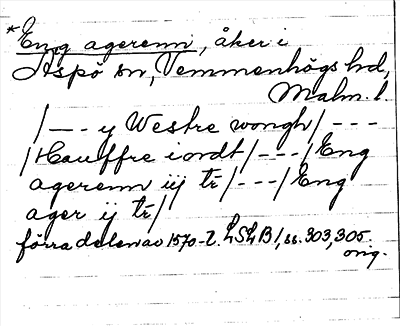 *Eng agerenn, åker i
Aspö sn, Vemmenhögs hd,
Malm. l.
/--- y Westre wongh/ ---
/Hauffre iordt/---/Eng
agerenn iij tr/---/Eng
ager ij tr/
förra delen av 1570-t. LSLB 1, ss. 303, 305
orig.